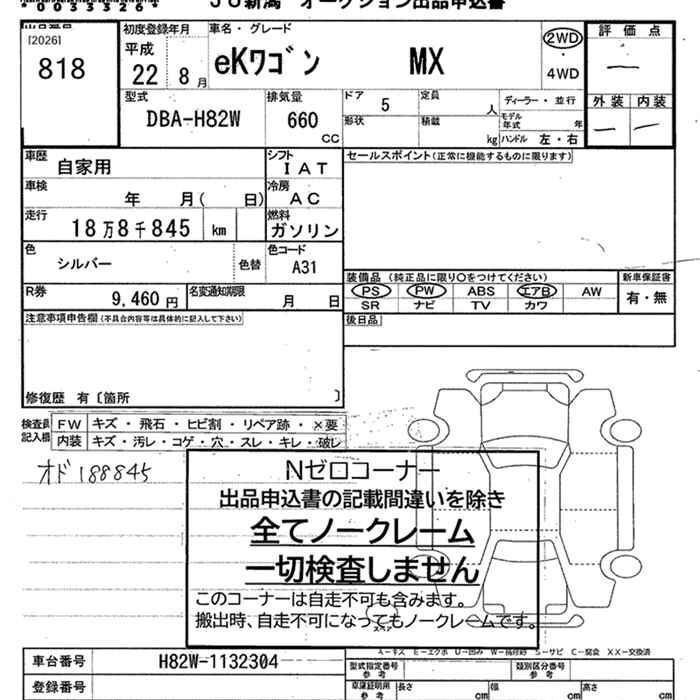 *0033326*
JU新潟 オークション出品申込書
出品番号
[2026]
818
初度登録年月
平成
22 8月
車名・グレード
eKワゴン MX
2WD
・
4WD
評価点
外装 内装
型式
DBA-H82W
排気量
660
cc
ドア 5
定員 人
形状
積載 kg
ディーラー・並行
モデル年式 年
ハンドル 左・右
車歴
自家用
シフト
IAT
車検
年 月( 日)
冷房
AC
走行
18万8千845 km
燃料
ガソリン
色
シルバー
色替
色コード
A31
R券
9,460円
名変通知期限
月 日
セールスポイント(正常に機能するものに限ります)
装備品(純正品に限り○をつけてください)
PS PW ABS エアB AW
SR ナビ TV カワ
新車保証書
有・無
後日品
注意事項申告欄(不具合内容等は具体的に記入して下さい)
修復歴 有〔箇所 〕
検査員記入欄
FW キズ・飛石・ヒビ割・リペア跡・×要
内装 キズ・汚レ・コゲ・穴・スレ・キレ・破レ
オド188845
Nゼロコーナー
出品申込書の記載間違いを除き
全てノークレーム
一切検査しません
このコーナーは自走不可も含みます。
搬出時、自走不可になってもノークレームです。
スペア
A-キズ E-エクボ U-凹み W-補修跡 S-サビ C-腐食 XX-交換済
車台番号 H82W-1132304
登録番号
型式指定番号
参考
類別区分番号
参考
車庫証明用
参考
長さ cm 幅 cm 高さ cm